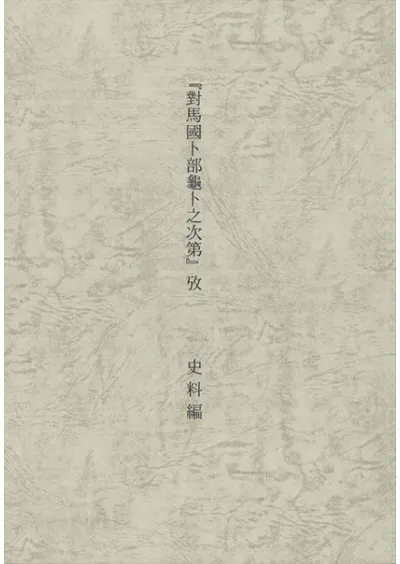 『對馬國卜部龜卜之次第』攷　史料編